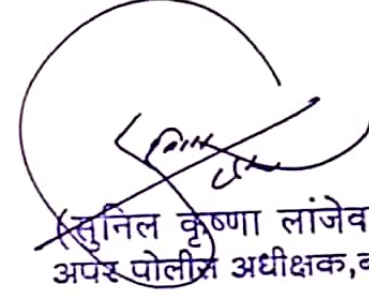 (सुनिल कृष्णा लांजेव
अपर पोलीस अधीक्षक,